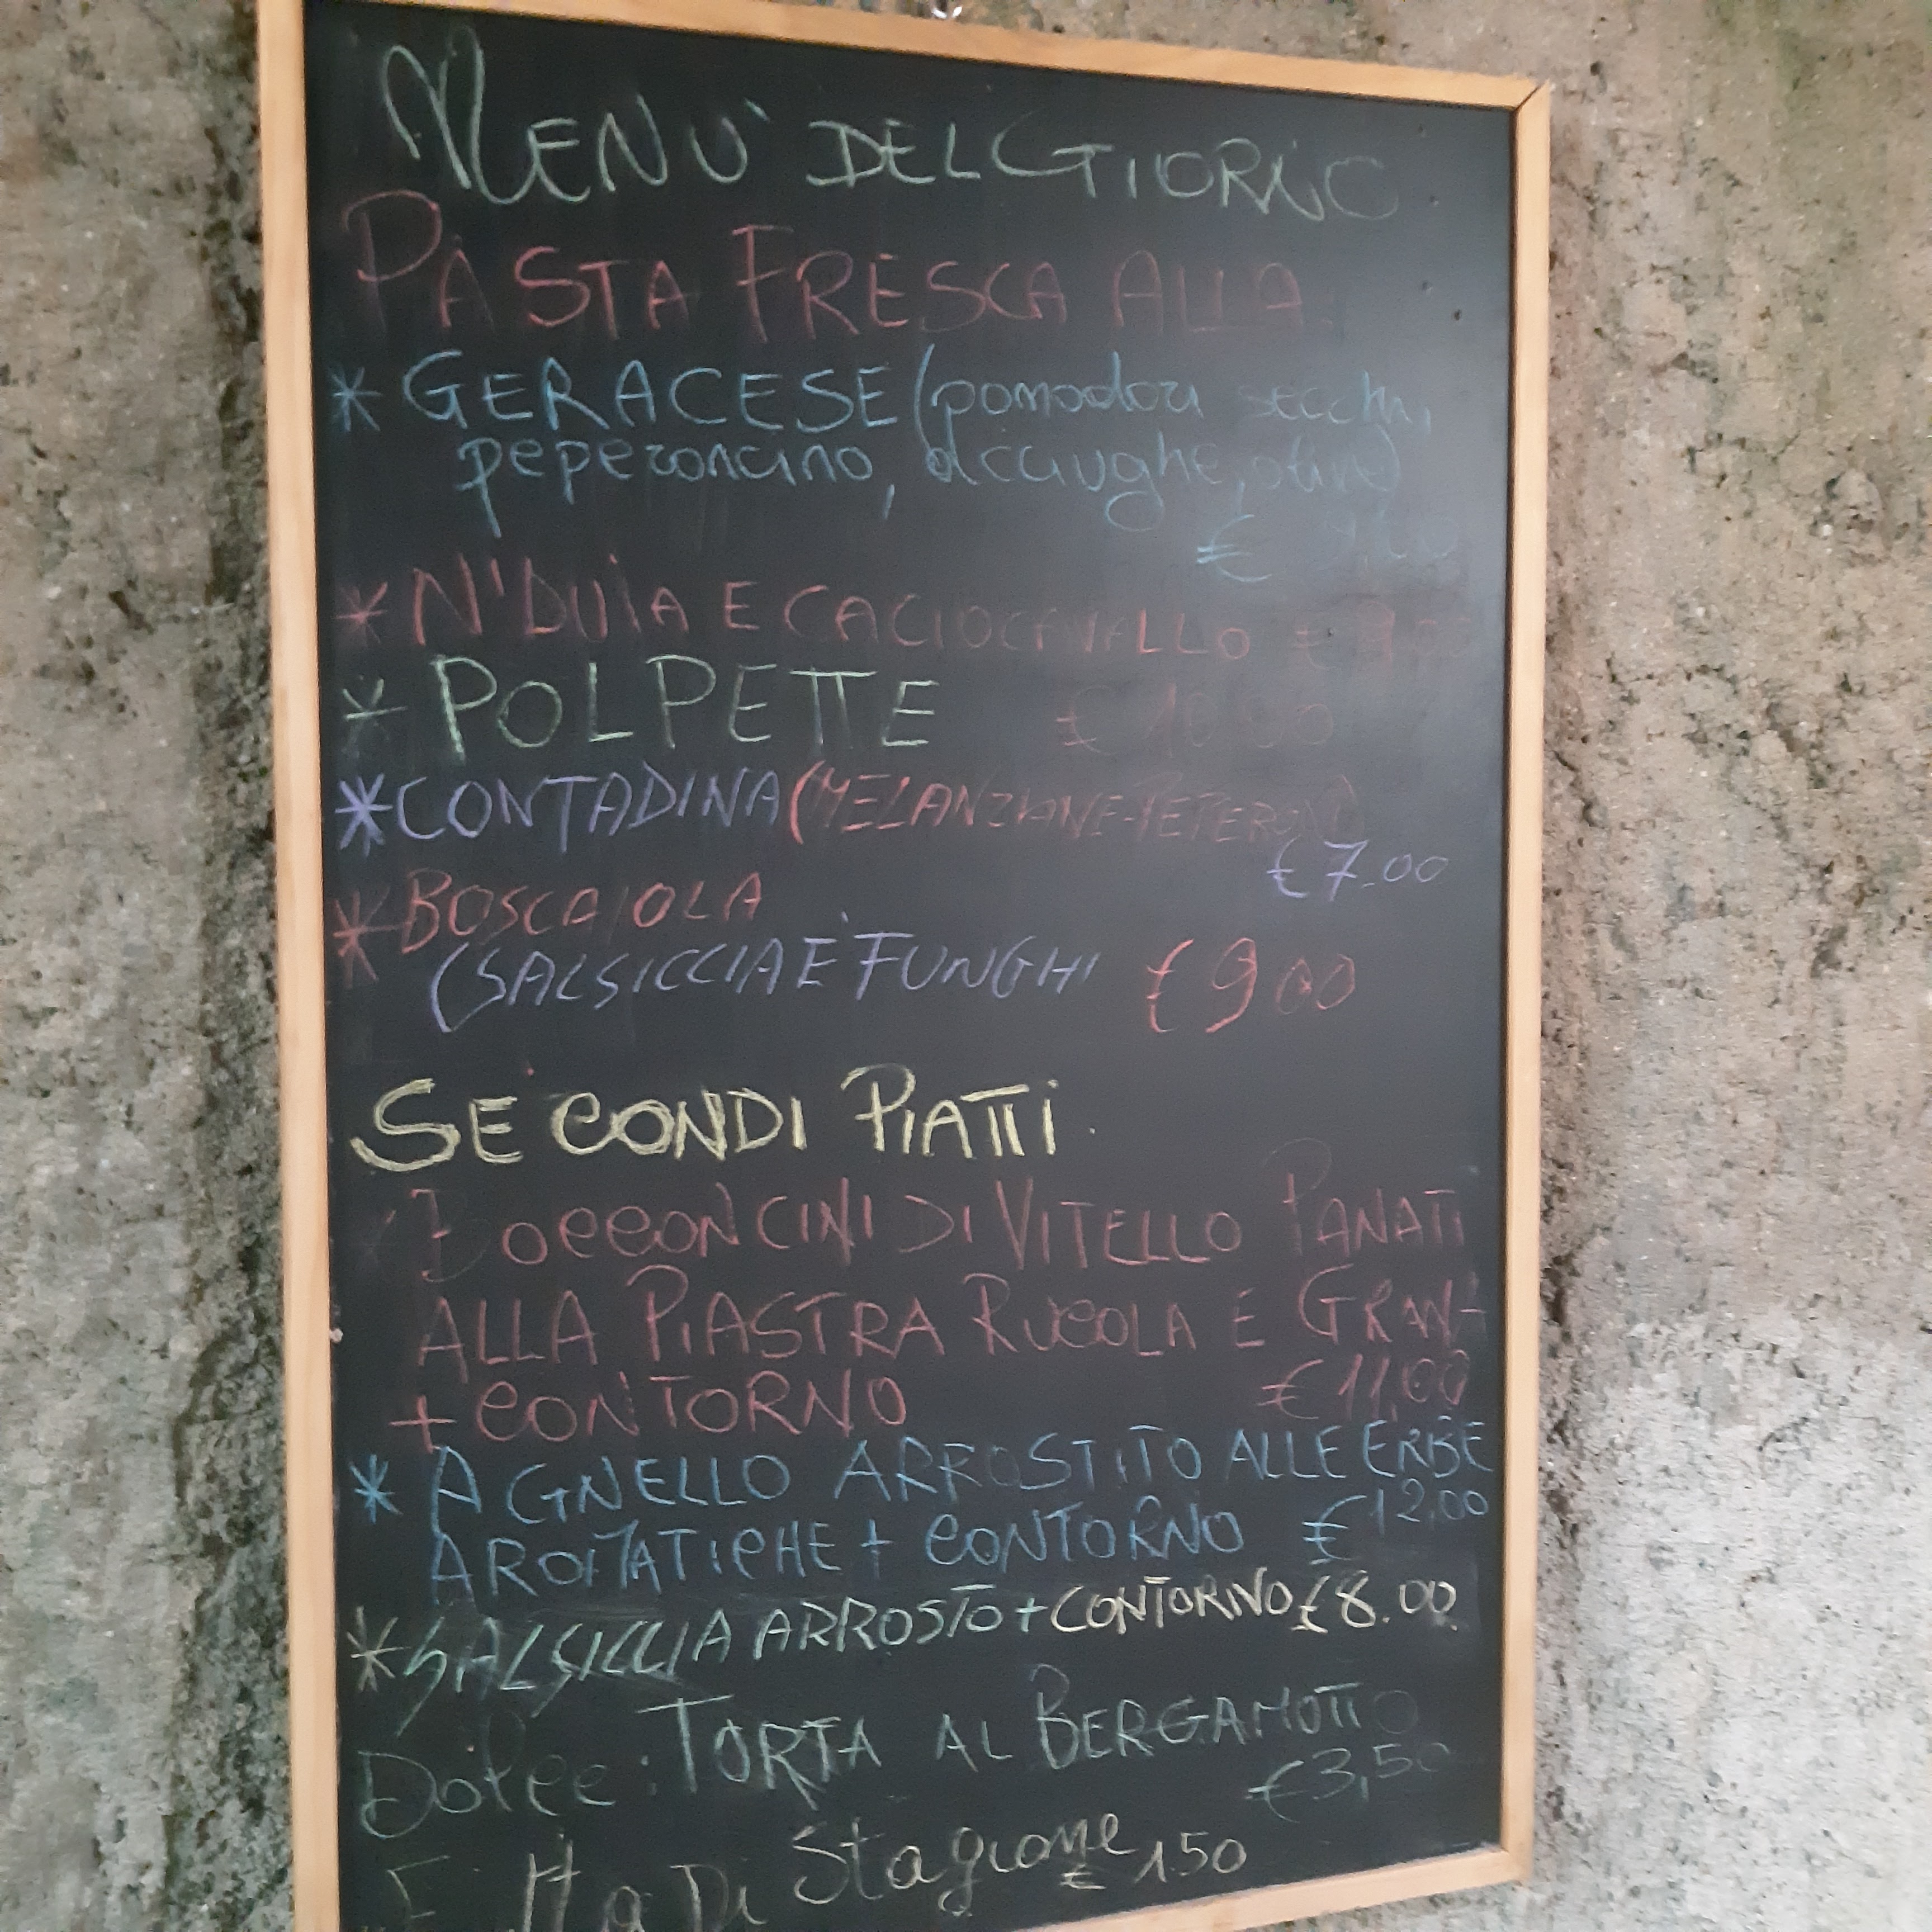 MENU' DEL GIORNO
PASTA FRESCA ALLA
* GERACESE (pomodori secchi,
peperoncino, acciughe, olive)
€
* N'DUJA E CACIOCAVALLO €
* POLPETTE € 10.00
* CONTADINA (MELANZIANE-PEPERONI)
€ 7.00
* BOSCAIOLA
(SALSICCIA E' FUNGHI € 9 00
SECONDI PIATTI
BOCCONCINI DI VITELLO PANATI
ALLA PIASTRA RUCOLA E GRAN-
+ CONTORNO € 11,00
* AGNELLO ARROSTITO ALLE ERBE
AROMATICHE + CONTORNO € 12,00
* SALSICCIA ARROSTO + CONTORNO € 8.00
Dolce: TORTA AL BERGAMOTTO
€ 3,50
Di Stagione
€ 1.50